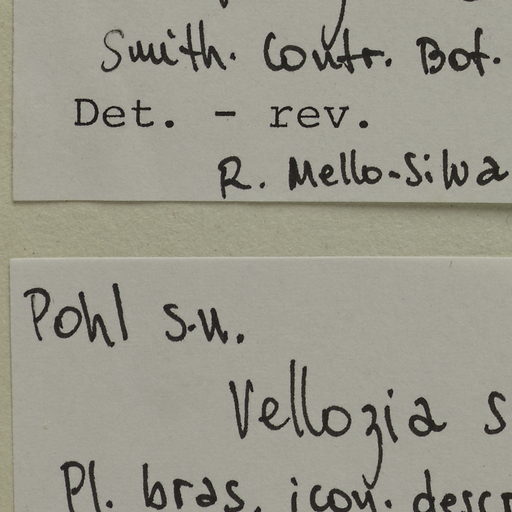 Smith. Contr. Bot.
Det. - rev.
R. Mello-Silva
Pohl s.n.
Vellozia s
Pl. bras. icon. descr